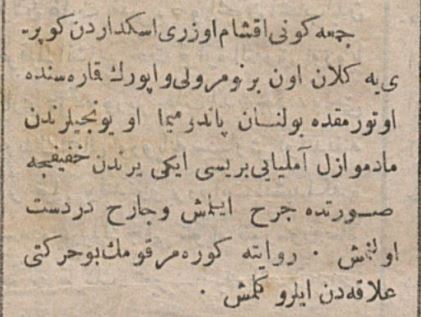 جمعه كونی اقشام اوزری اسكداردن كوپر-
ی‌یه كلان اون بر نومرولی واپورك قاره‌سنده
اوتورمقده بولنـان پاندرميما اويونجيلرندن
مادموازل آمليايی بريسی ايكی يرندن خفيفجه
صـورتده جرح ايتمش وجارح دردست
اولنمش . روايته كوره مرقومك بو حركتی
علاقه‌دن ايلرو كلمش .